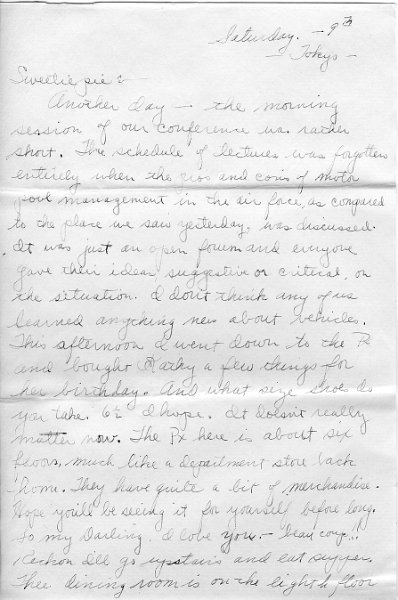 Saturday. - 9th
- Tokyo -
Sweetie pie :-
Another day - the morning
session of our conference was rather
short. The schedule of lectures was forgotten
entirely when the pros and cons of motor
pool management in the air force, as compared
to the place we saw yesterday, was discussed.
It was just an open forum and everyone
gave their ideas, suggestive or critical, on
the situation. I don't think any of us
learned anything new about vehicles.
This afternoon I went down to the Px
and bought Kathy a few things for
her birthday. And what size shoes do
you take. 6½ I hope. It doesn't really
matter now. The Px here is about six
floors, much like a department store back
home. They have quite a bit of merchandise.
Hope you'll be seeing it for yourself before long.
So my Darling. I love you. - "beau coup"..
Reckon I'll go upstairs and eat supper.
Thee dining room is on the eighth floor